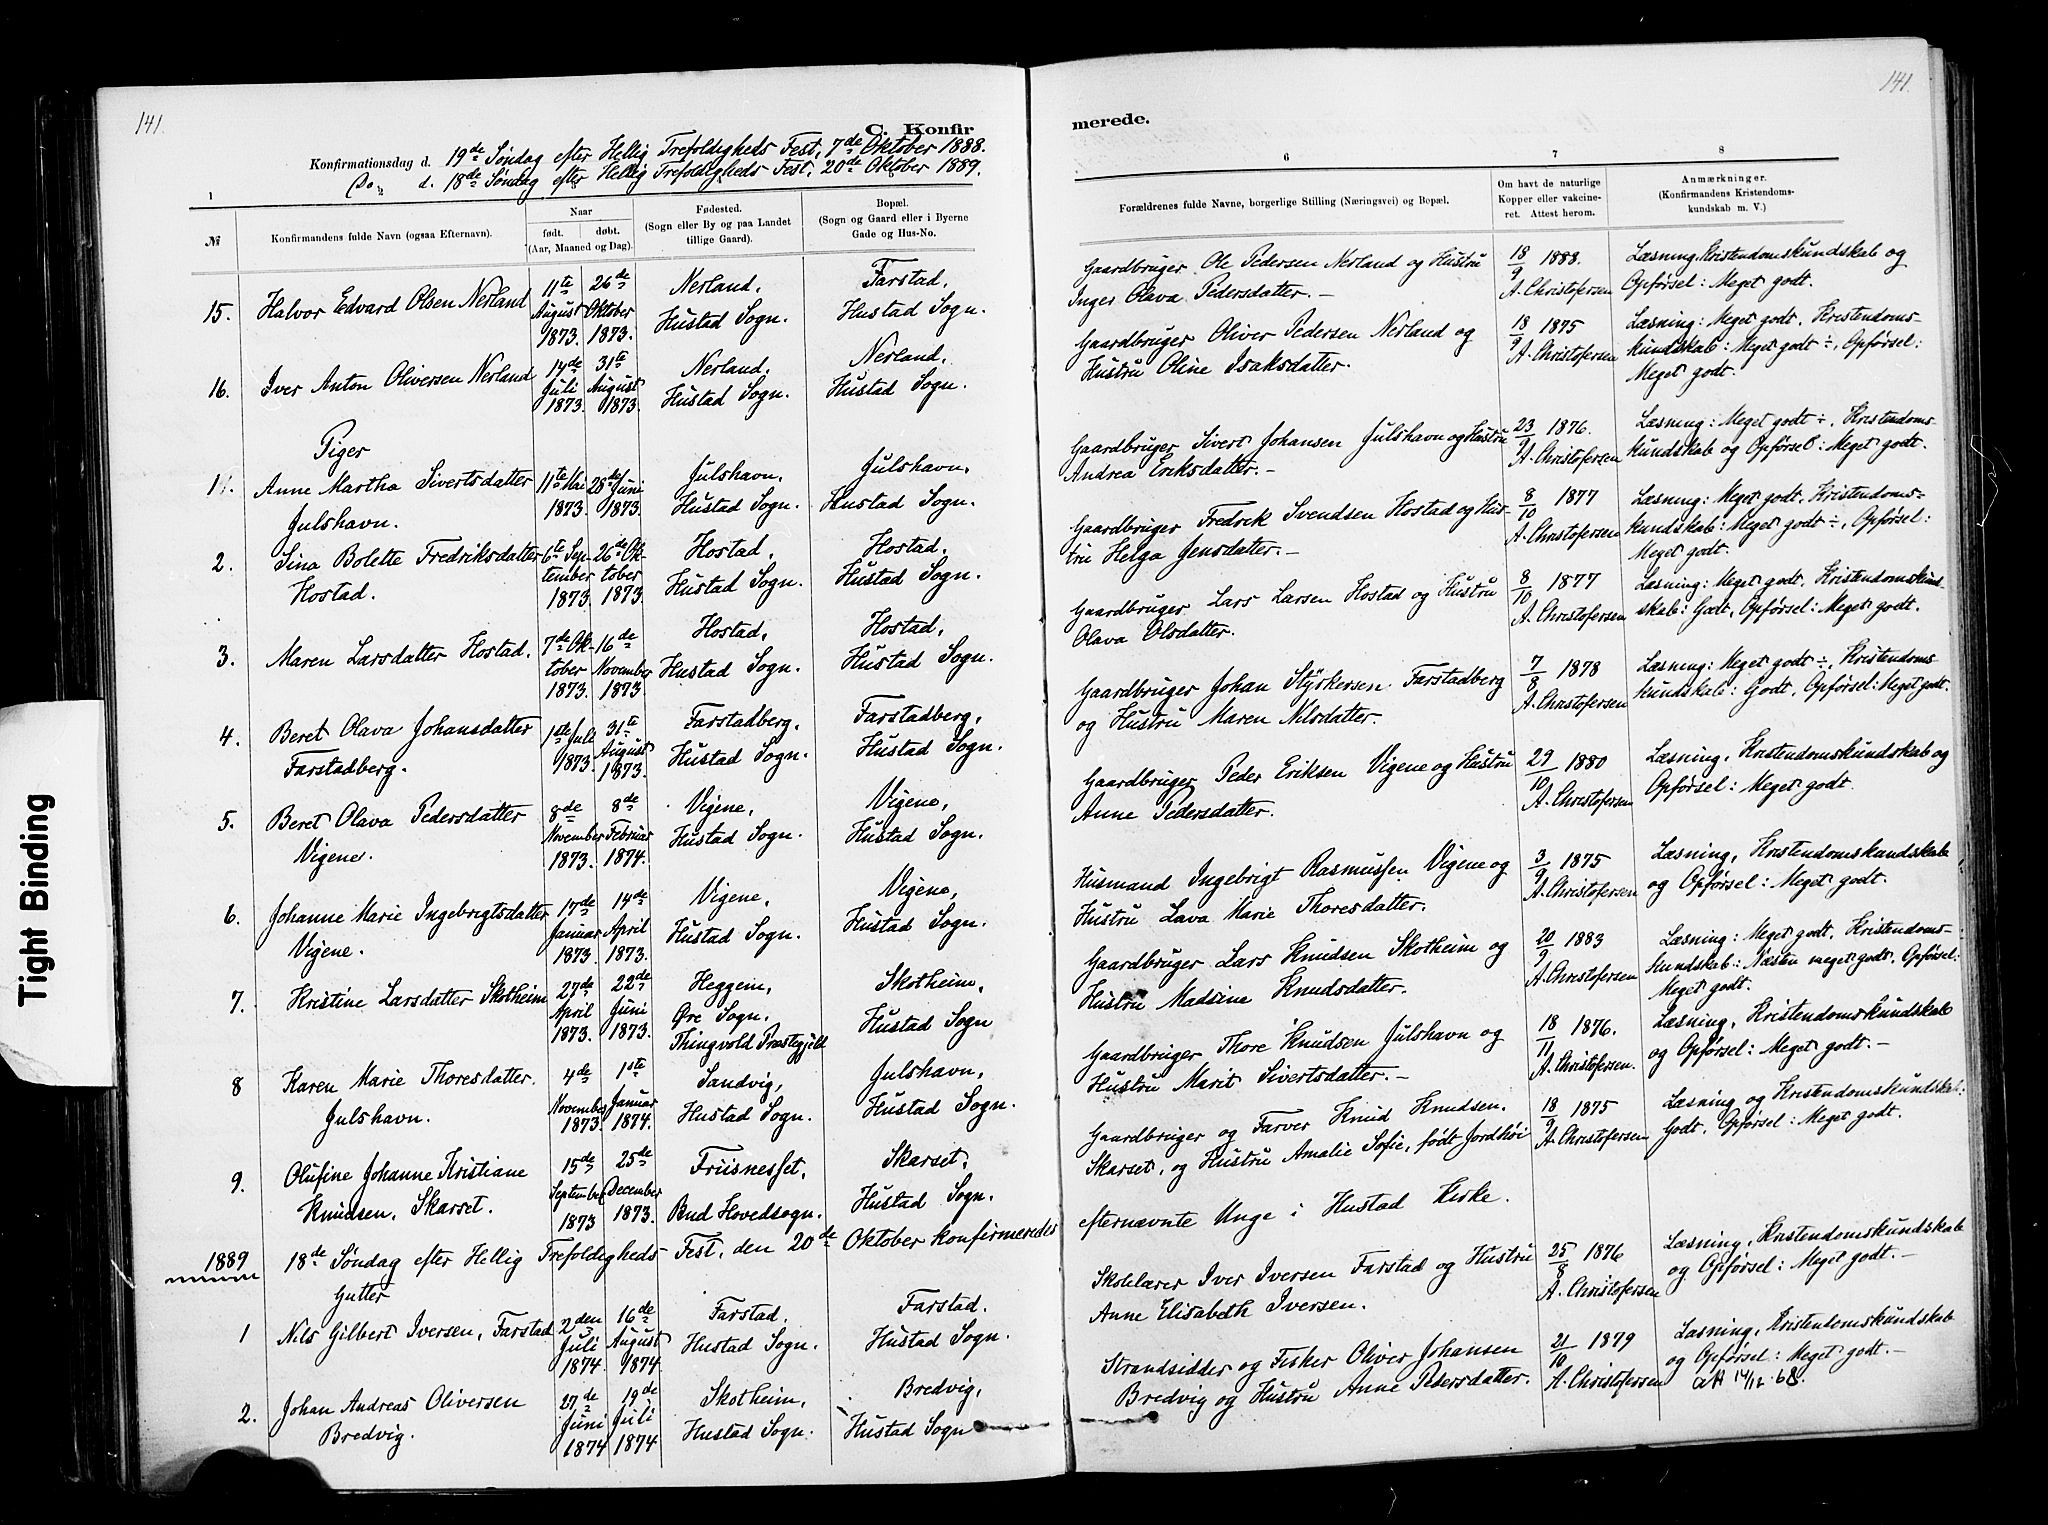 141.
C. Konfir
Konfirmationsdag d. 19de Søndag efter Hellig Trefoldigheds Fest, 7de Oktober 1888.
Do d. 18de Søndag efter Hellig Trefoldigheds Fest, 20de Oktober 1889.
1
№
Konfirmandens fulde Navn (ogsaa Efternavn).
Naar
født. døbt.
(Aar, Maaned og Dag).
Fødested.
(Sogn eller By og paa Landet
tillige Gaard).
Bopæl.
(Sogn og Gaard eller i Byerne
Gade og Hus-No.
15. Halvor Edvard Olsen Nerland 11te August 1873. 26de Oktober 1873. Nerland, Hustad Sogn. Farstad, Hustad Sogn.
16. Iver Anton Oliversen Nerland 14de Juli 1873. 31te August 1873. Nerland, Hustad Sogn. Nerland, Hustad Sogn.
Piger
1. Anne Martha Sivertsdatter Julshavn. 11te Mai 1873. 28de Juni 1873. Julshavn, Hustad Sogn. Julshavn, Hustad Sogn.
2. Sina Bolette Fredriksdatter Hostad. 6te September 1873. 26de Oktober 1873. Hostad, Hustad Sogn. Hostad, Hustad Sogn.
3. Maren Larsdatter Hostad. 7de Oktober 1873. 16de November 1873 Hostad, Hustad Sogn. Hostad, Hustad Sogn.
4. Beret Olava Johansdatter Farstadberg. 1ste Juli 1873. 31te August 1873. Farstadberg, Hustad Sogn. Farstadberg, Hustad Sogn.
5. Beret Olava Pedersdatter Vigene. 8de November 1873. 8de Februar 1874. Vigene, Hustad Sogn. Vigene, Hustad Sogn.
6. Johanne Marie Ingebrigtsdatter Vigene. 17de Januar 1873. 14de April 1873. Vigene, Hustad Sogn. Vigene, Hustad Sogn.
7. Kristine Larsdatter Skotheim 27de April 1873. 22de Juni 1873. Heggem, Øre Sogn, Thingvold Præstegjeld Skotheim, Hustad Sogn
8 Karen Marie Thoresdatter Julshavn. 4de November 1873. 1ste Januar 1874. Sandvig, Hustad Sogn. Julshavn, Hustad Sogn.
9. Olufine Johanne Kristiane Knudsen, Skarset. 15de September 1873 25de December 1873. Friisnesset, Bud Hovedsogn. Skarset, Hustad Sogn.
1889 18de Søndag efter Hellig Trefoldigheds Fest, den 20de Oktober konfirmeredes
Gutter
1 Nils Gilbert Iversen, Farstad 2den Juli 1874. 16de August 1874 Farstad, Hustad Sogn. Farstad. Hustad Sogn.
2. Johan Andreas Oliversen Bredvig. 27de Juni 1874 19de Juli 1874 Skotheim, Hustad Sogn. Bredvig, Hustad Sogn
141.
merede.
6
7
8
Forældrenes fulde Navne, borgerlige Stilling (Næringsvei) og Bopæl.
Om havt de naturlige
Kopper eller vakcine-
ret. Attest herom.
Anmærkninger.
(Konfirmandens Kristendoms-
kundskab m. V.)
Gaardbruger Ole Pedersen Nerland og Hustru Inger Olava Pedersdatter. — 18/9 1888. A. Christofersen Læsning, Kristendomskundskab og Opførsel: Meget godt.
Gaardbruger Oliver Pedersen Nerland og Hustru Oline Isaksdatter. 18/9 1875 A. Christofersen Læsning: Meget godt, Kristendomskundskab: Meget godt ÷, Opførsel: Meget godt.
Gaardbruger Sivert Johansen Julshavn og Hustru Andrea Eriksdatter. — 23/9 1876. A. Christofersen Læsning: Meget godt ÷, Kristendomskundskab og Opførsel: Meget godt.
Gaardbruger Fredrik Svendsen Hostad og Hustru Helga Jensdatter. — 8/10 1877 A. Christofersen Læsning: Meget godt, Kristendomskundskab: Meget godt ÷, Opførsel: Meget godt.
Gaardbruger Lars Larsen Hostad og Hustru Olava Olsdatter. 8/10 1877 A. Christofersen Læsning: Meget godt, Kristendomskundskab: Godt, Opførsel: Meget godt.
Gaardbruger Johan Styrkersen Farstadberg og Hustru Maren Nilsdatter. 7/8 1878 A. Christofersen Læsning: Meget godt ÷, Kristendomskundskab: Godt, Opførsel: Meget godt.
Gaardbruger Peder Eriksen Vigene og Hustru Anne Pedersdatter. 29/10 1880 A. Christofersen Læsning, Kristendomskundskab og Opførsel: Meget godt.
Husmand Ingebrigt Rasmussen Vigene og Hustru Lava Marie Thoresdatter. 3/9 1875 A. Christofersen Læsning, Kristendomskundskab og Opførsel: Meget godt.
Gaardbruger Lars Knudsen Skotheim og Hustru Madsine Knudsdatter. 20/9 1883 A. Christofersen Læsning: Meget godt, Kristendomskundskab: Næsten meget godt, Opførsel: Meget godt.
Gaardbruger Thore Knudsen Julshavn og Hustru Marit Sivertsdatter. — 18/11 1876. A. Christofersen. Læsning, Kristendomskundskab og Opførsel: Meget godt. —
Gaardbruger og Farver Knud Knudsen Skarset, og Hustru Amalie Sofie, født Jordhøi 18/9 1875 A. Christofersen Læsning og Kristendomskundskab: Godt, Opførsel: Meget godt.
efternævnte Unge i Hustad Kirke.
Skolelærer Iver Iversen Farstad og Hustru Anne Elisabeth Iversen. 25/8 1876 A. Christofersen Læsning, Kristendomskundskab og Opførsel: Meget godt. —
Strandsidder og Fisker Oliver Johansen Bredvig og Hustru Anne Pedersdatter. 21/10 1879 A. Christofersen Læsning, Kristendomskundskab og Opførsel: Meget godt. —
14/12 68.
Tight Binding